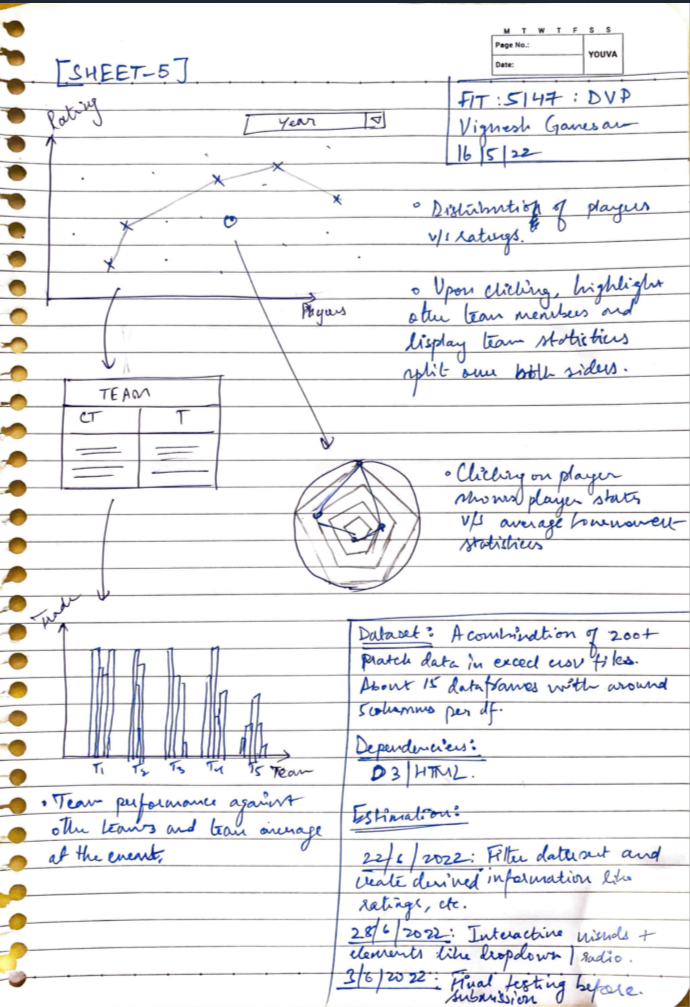 M T W T F S S
Page No.:
Date:
YOUVA
[SHEET-5]
FIT : 5147 : DVP
Vignesh Ganesan
16/5/22
Rating
Year
Players
• Distribution of players
v/s ratings.
• Upon clicking, highlight
other team members and
display team statistics
split over both sides.
TEAM
CT
T
• Clicking on player
shows player stats
v/s average tournament
statistics
T1
T2
T3
T4
T5
Team
• Team performance against
other teams and team average
at the event.
Dataset: A combination of 200+
match data in excel csv files.
About 15 dataframes with around
5 columns per df.
Dependencies:
D3 | HTML.
Estimation:
22/6/2022: Filter dataset and
create derived information like
ratings, etc.
28/6/2022: Interactive visuals +
elements like dropdown | radio.
3/6/2022: Final testing before
submission